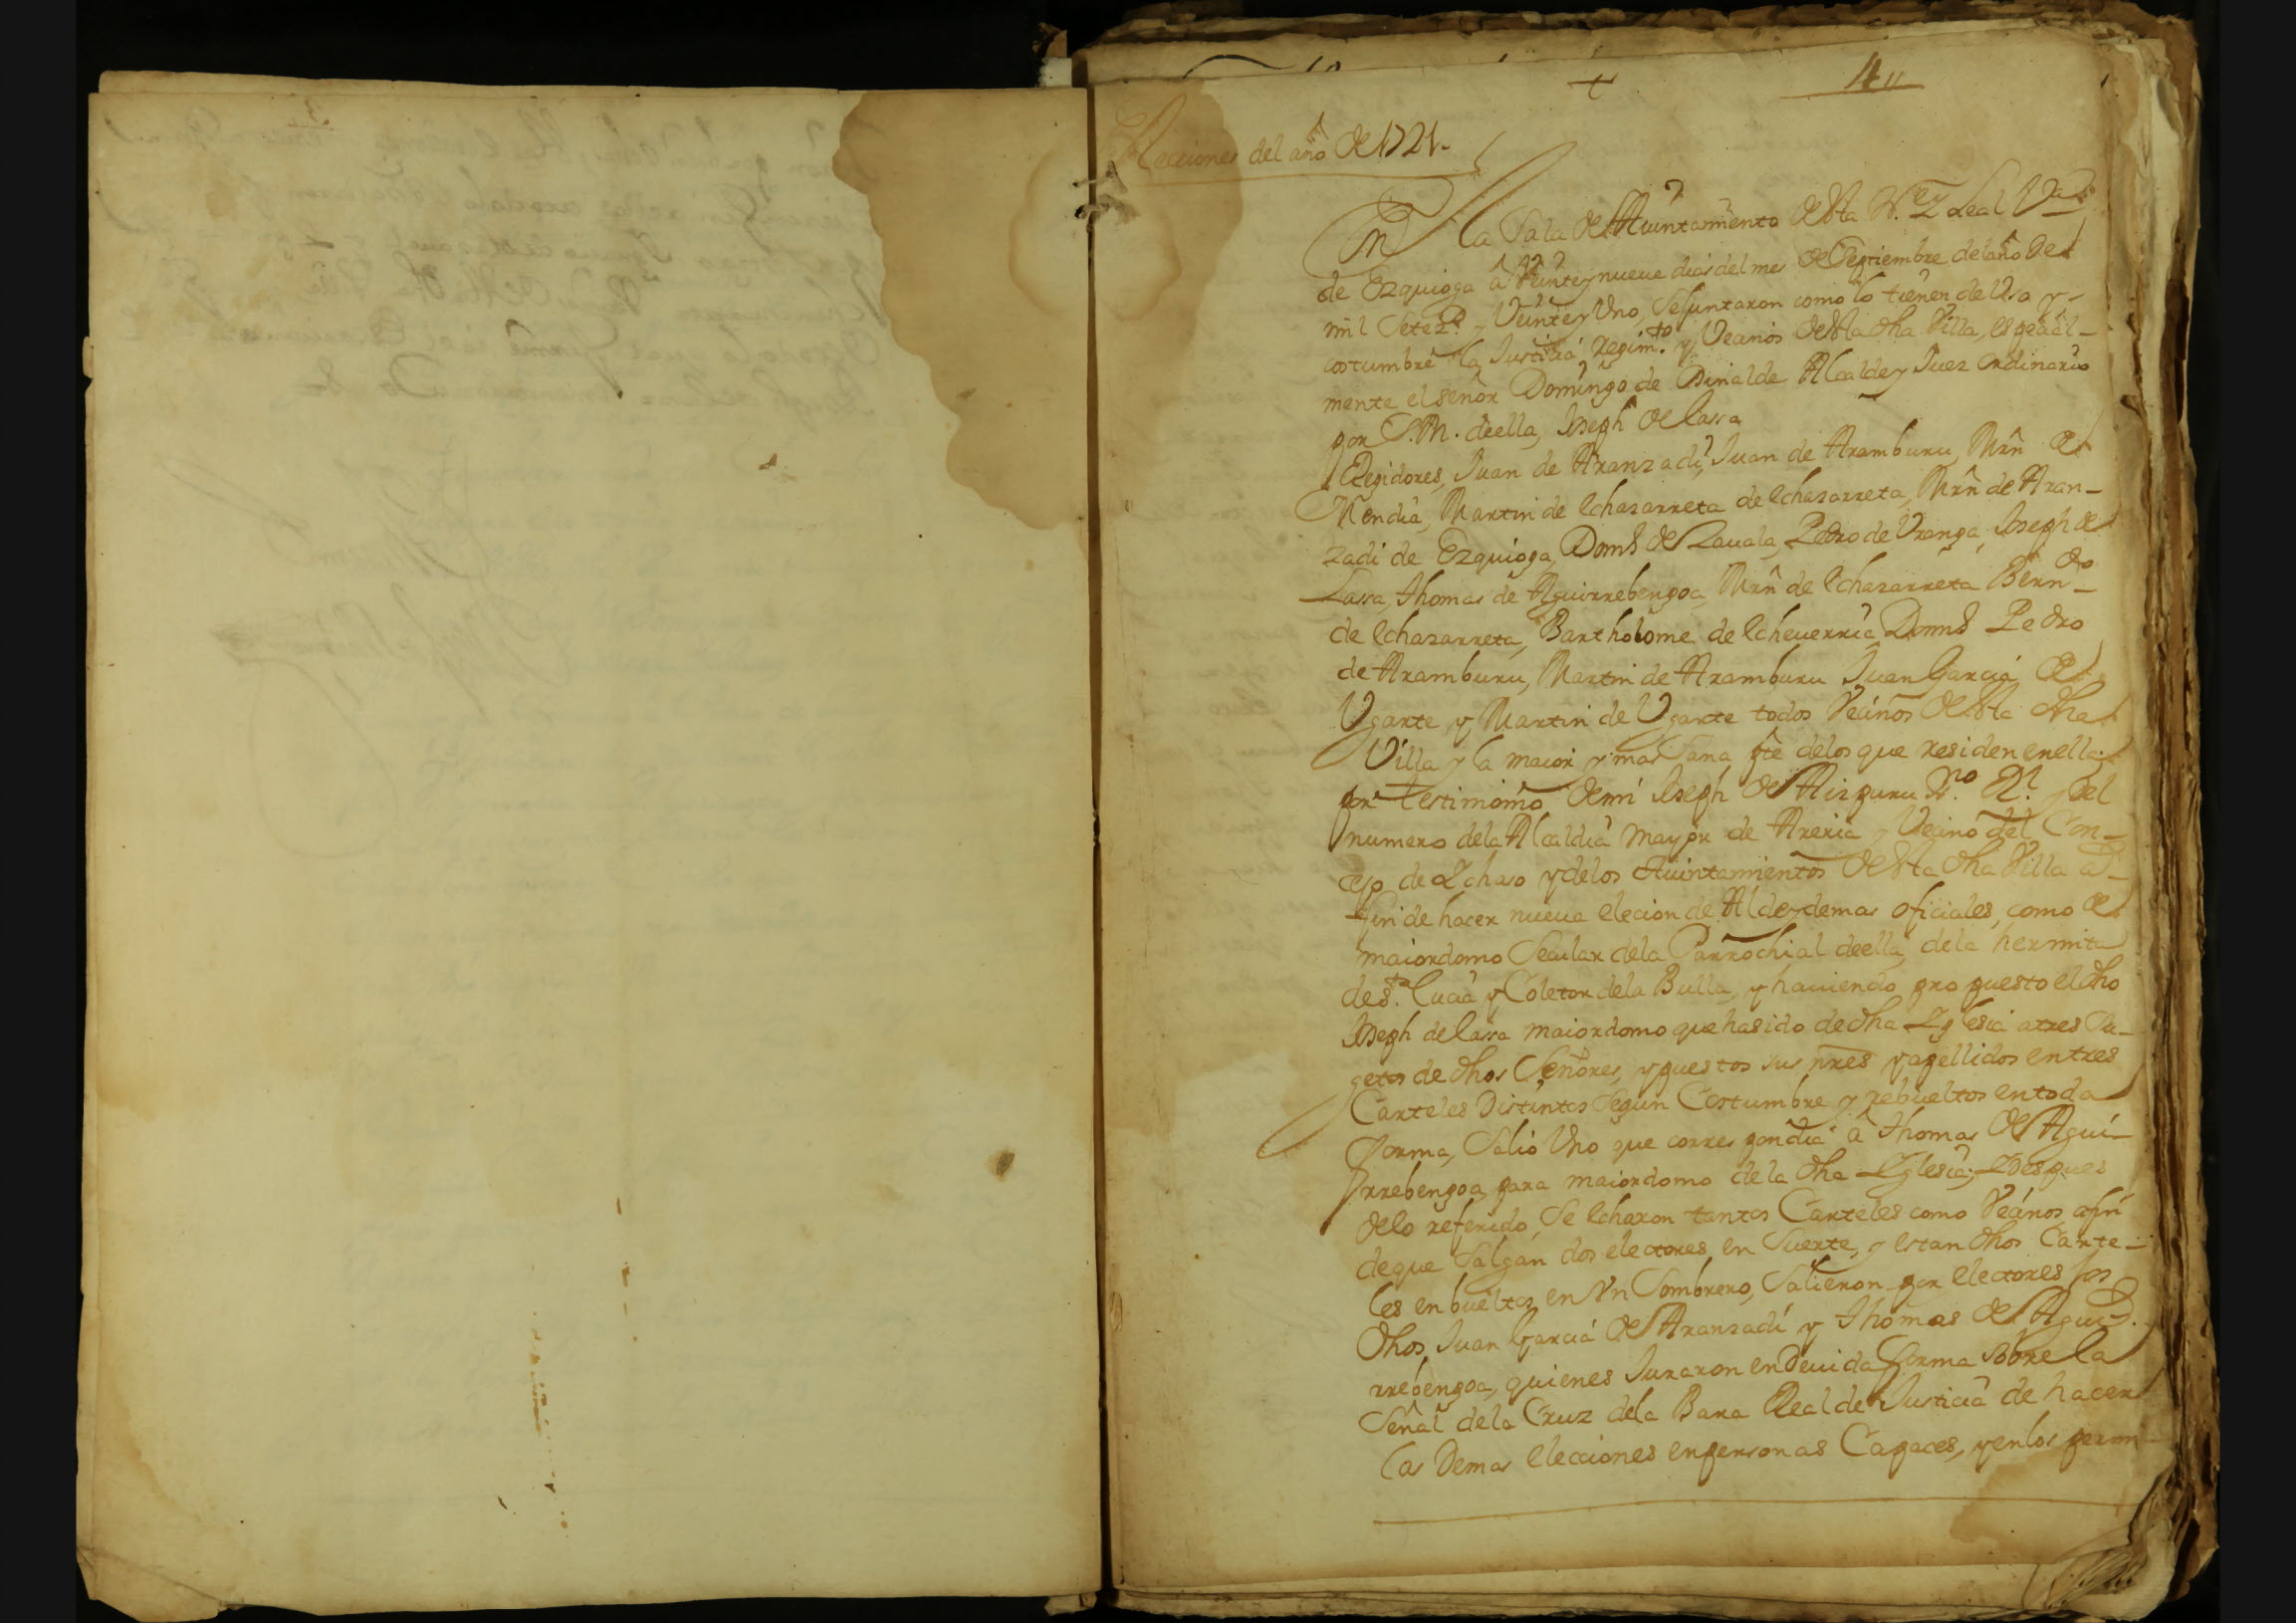 4
Elecciones del año de 1721.
En la Sala del Aiuntamiento de esta N. y Leal Va
de Ezquioga à Veinte y nueue dias del mes de Septiembre del año de
mil Setez.s y Veinte y Vno, Se Juntaron como lo tienen de Vso y
costumbre la Justicia, Regim.to y Vecinos de esta dha Villa, especial-
mente el señor Domingo de Alcalde y Juez ordinario
por S.M. de ella, Joseph de Lassa
Regidores, Juan de Aranzadi, Juan de Aramburu, Mrn de
Mendia, Martin de Echasarreta de Echasarreta, Mrn de Aran-
zadi de Ezquioga, Domo de Zauala, Pedro de Vranga, Joseph de
Lassa, Thomas de Aguirrebengoa, Mrn de Echasarreta Bern.do
de Echasarreta, Bartholome de Echeuerria, Domo Pedro
de Aramburu, Martin de Aramburu Juan Garcia de
Vgarte y Martin de Vgarte todos Vecinos de esta dha
Villa y la maior y mas Sana pte de los que residen en ella
por testimonio de mi Joseph de Aizpuru Ss.no Rl. del
numero de la Alcaldia Mayor de Areria y Vecino del Con-
cejo de Ichaso y de los Aiuntamientos de esta dha Villa a
fin de hacer nueua elecion de Alde y demas oficiales, como de
maiordomo Secular de la Parrochial de ella, de la hermita
de S.ta Lucia y Coletor de la Bulla, y hauiendo propuesto el dho
Joseph de Lassa maiordomo que ha sido de dha Yglesia a tres Su-
getos de dhos Señores, y puestos sus nres y apellidos en tres
Carteles Distintos Segun Costumbre y rebueltos en toda
forma, Salio Vno que correspondia à Thomas de Agui-
rrebengoa, para maiordomo de la dha Yglesia; Y despues
de lo referido, Se Echaron tantos Carteles como Vecinos afin
de que Salgan dos electores en Suerte, y estan dhos Carte-
les enbueltos en Vn Sombrero, Salieron por electores los
dhos Juan Garcia de Aranzadi y Thomas de Agui-
rrebengoa, quienes Juraron en Deuida forma Sobre la
Señal de la Cruz de la Bara Real de Justicia de hacer
las Demas Elecciones en personas Capaces, y en los